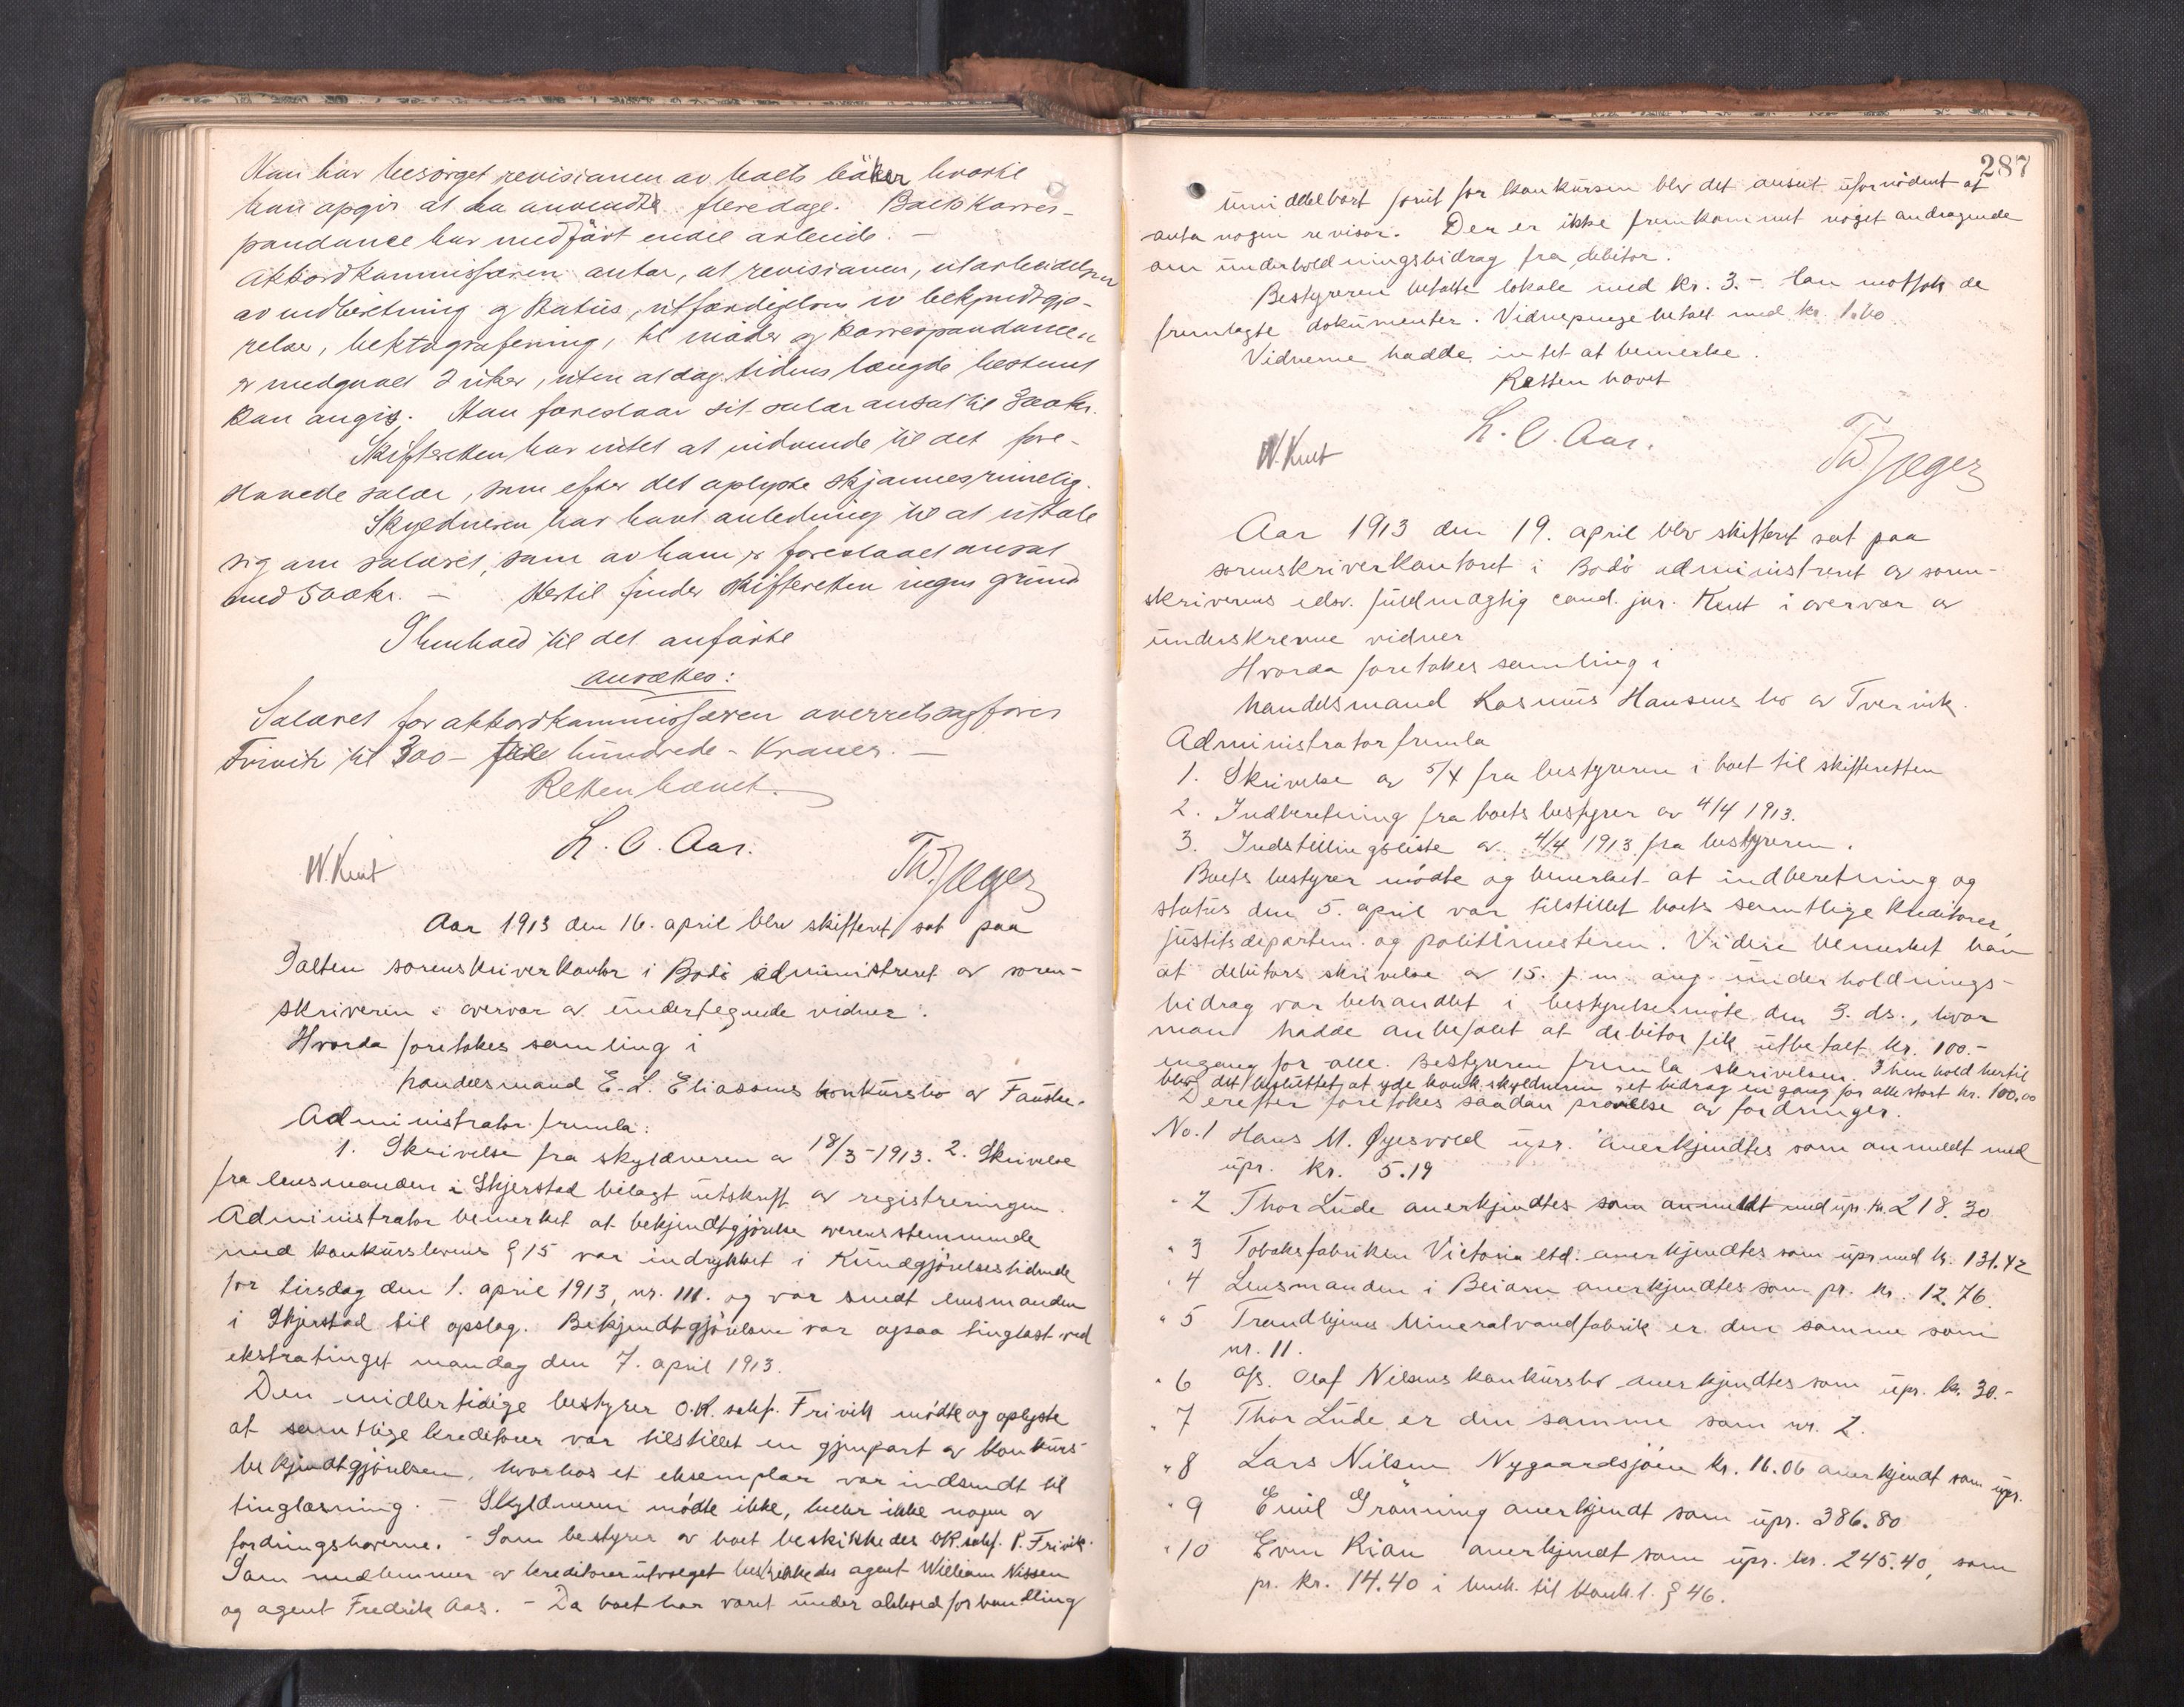 Han har besørget revisionen av boets bøker hvortil
han opgir at ha anvendt flere dage. Boets korres-
pondance har medført endel arbeide. -
Akkordkommissæren antar, at revisionen, utarbeidelsen
av indberetning og status, utfærdigelsen av bekjendtgjø-
relser, hektografering, til møder og korrespondancen
er medgaaet 2 uker, uten at dag tidens længde bestemt
kan angis. Han foreslaar sit salær ansat til 300 kr.
Skifteretten har intet at indvende til det fore-
slaaede salær, som efter det oplyste skjønnes rimelig.
Skyldneren har havt anledning til at uttale
sig om salæret, som av ham er foreslaaet ansat
med 500 kr. - Hertil finder skifteretten ingen grund
I henhold til det anførte
ansættes:
Salæret for akkordkommissæren overretssagfører
Frivik til 300 - hundrede - Kroner. -
Retten hævet.
L. O. Aas.
W. Knut Th. Jæger
Aar 1913 den 16. april blev skifteret sat paa
Salten sorenskriverkontor i Bodø administreret av soren-
skriveren i overvær av undertegnede vidner:
Hvorda foretokes samling i
handelsmand E. L. Eliassens konkursbo av Fauske.
Administrator fremla:
1. Skrivelse fra skyldneren av 18/3-1913. 2. Skrivelse
fra lensmanden i Skjerstad bilagt utskrift av registreringen.
Administrator bemerket at bekjendtgjørelse overensstemmende
med konkurslovens § 15 var indrykket i Kundgjørelsestidende
for tirsdag den 1. april 1913, nr. 111. og var sendt lensmanden
i Skjerstad til opslag. Bekjendtgjørelsen var ogsaa tinglæst ved
ekstratinget mandag den 7. april 1913.
Den midlertidige bestyrer O.R. sakf. Frivik mødte og oplyste
at samtlige kreditorer var tilstillet en gjenpart av konkurs-
bekjendtgjørelsen, hvorhos et eksemplar var indsendt til
tinglæsning. - Skyldneren mødte ikke, heller ikke nogen av
fordringshaverne. - Som bestyrer av boet beskikkedes OR. sakf. P. Frivik.
Som medlemmer av kreditorutvalget beskikkedes agent William Nissen
og agent Fredrik Aas. - Da boet har været under akkordforhandling
287
umiddelbart forut for konkursen blev det anset ufornødent at
anta nogen revisor. Der er ikke fremkommet noget andragende
om underholdningsbidrag fra debitor.
Bestyreren betalte lokale med kr. 3.- Han mottok de
fremlagte dokumenter. Vidnepenge betalt med kr. 1.60
Vidnerne hadde intet at bemerke.
Retten hævet
L. O. Aas.
W. Knut Th Jæger
Aar 1913 den 19. april blev skifteret sat paa
sorenskriverkontoret i Bodø administreret av soren-
skriverens edsv. fuldmægtig cand. jur. Knut i overvær av
underskrevne vidner
Hvorda foretokes samling i
handelsmand Rasmus Hansens bo av Tvervik.
Administrator fremla
1. Skrivelse av 5/4 fra bestyreren i boet til skifteretten
2. Indberetning fra boets bestyrer av 4/4 1913.
3. Indstillingsliste av 4/4 1913 fra bestyreren.
Boets bestyrer mødte og bemerket at indberetning og
status den 5. april var tilstillet boets samtlige kreditorer,
justitsdepartem. og politimesteren. Videre bemerket han
at debitors skrivelse av 15. f. m. ang. underholdnings-
bidrag var behandlet i bestyrelsesmøte den 3. ds., hvor
man hadde anbefalt at debitor fik utbetalt kr. 100.-
engang for alle. Bestyreren fremla skrivelsen. I henhold hertil
blev det besluttet at yde konk.skyldneren et bidrag en gang for alle stort kr. 100,00
Derefter foretokes saadan prøvelse av fordringer.
No. 1 Hans M. Øyesvold upr. anerkjendtes som anmeldt med
upr. kr. 5.19
" 2 Thor Lude anerkjendtes som anmeldt med upr. kr. 218.30
" 3 Tobaksfabriken Victoria ltd. anerkjendtes som upr med kr. 131.42
" 4 Lensmanden i Beiarn anerkjendtes som pr. kr. 12.76.
" 5 Trondhjems Mineralvandfabrik er den samme som
nr. 11.
" 6 A/S. Olaf Nilsens konkursbo anerkjendtes som upr. kr. 30.-
" 7 Thor Lude er den samme som nr. 2.
" 8 Lars Nilsen Nygaardsjøen kr. 16.06 anerkjendt som upr.
" 9 Emil Grønning anerkjendt som upr. 386.80
" 10 Even Rian anerkjendt som upr. kr. 245.40, som
pr. kr. 14.40 i henh. til konk.l. § 46.